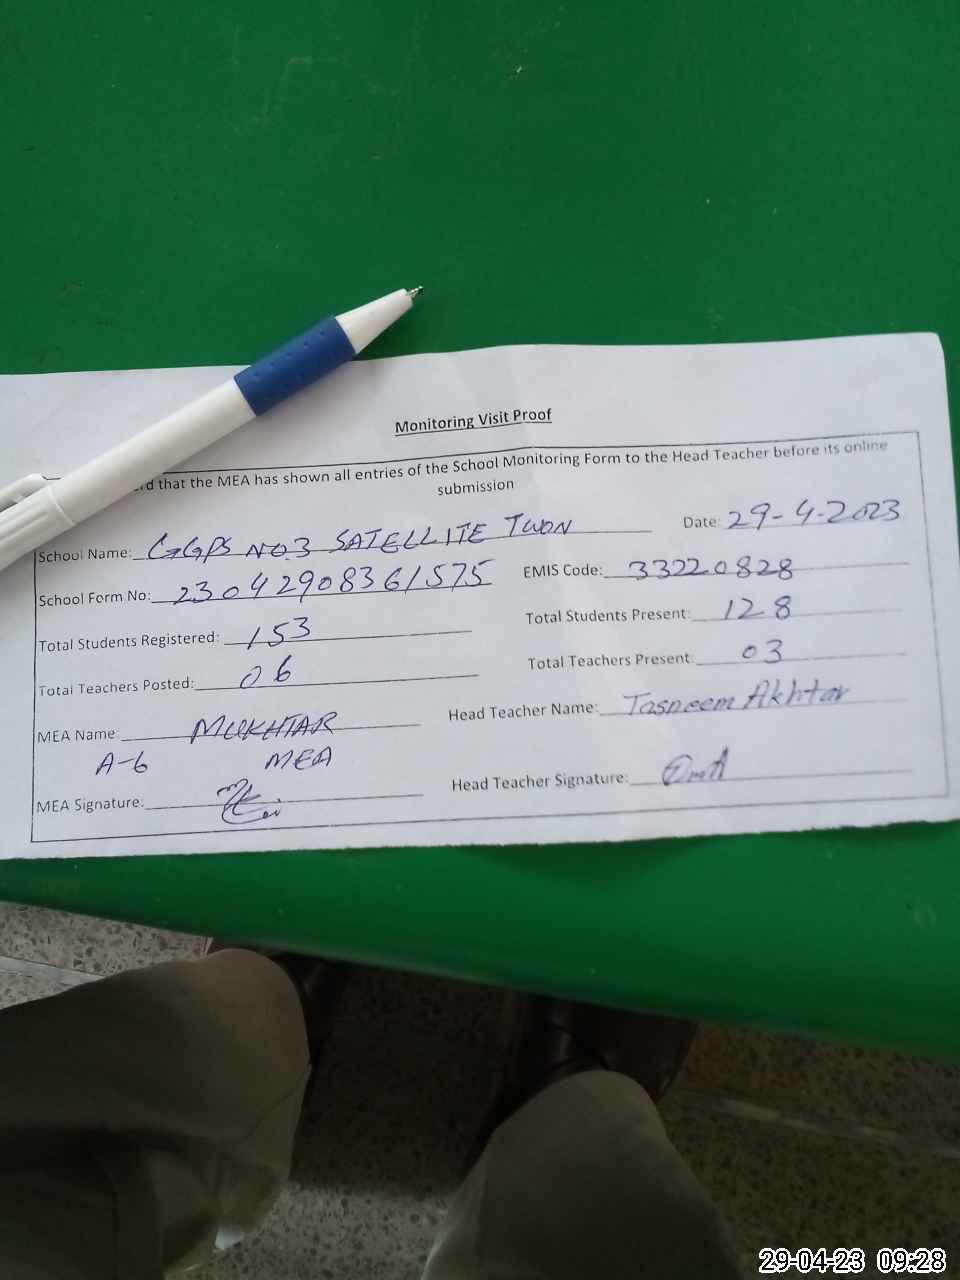 Monitoring Visit Proof
that the MEA has shown all entries of the School Monitoring Form to the Head Teacher before its online
submission
School Name: GGPS NO.3 SATELLITE TWON Date: 29-4-2023
School Form No: 23042908361575 EMIS Code: 33220828
Total Students Registered: 153 Total Students Present: 128
Total Teachers Posted: 06 Total Teachers Present: 03
MEA Name: MUKHTAR Head Teacher Name: Tasneem Akhtar
A-6 MEA
MEA Signature: Head Teacher Signature:
29-04-23 09:28